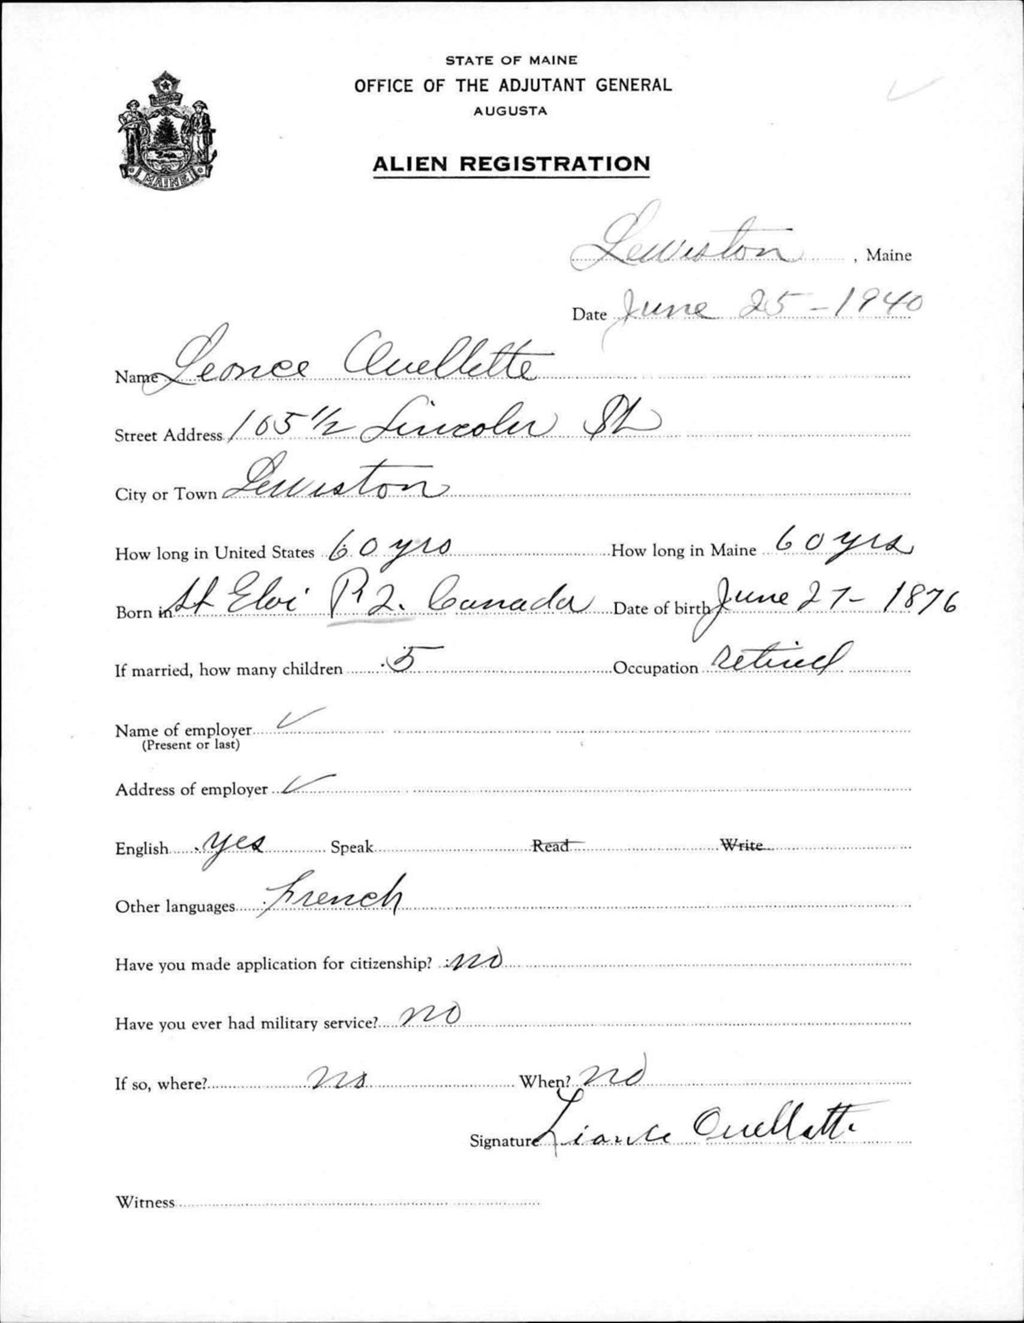 STATE OF MAINE
OFFICE OF THE ADJUTANT GENERAL
AUGUSTA
ALIEN REGISTRATION
MAINE
Lewiston, Maine
Date June 25-1940
Name Leonce Ouellette
Street Address 165 1/2 Lincoln St
City or Town Lewiston
How long in United States 60 yrs How long in Maine 60 yrs
Born in St Eloi P2. Canada Date of birth June 27-1876
If married, how many children 5 Occupation retired
Name of employer
(Present or last)
Address of employer
English yes Speak Read Write
Other languages French
Have you made application for citizenship? no
Have you ever had military service? no
If so, where? no When? no
Signature Liance Ouellatte
Witness